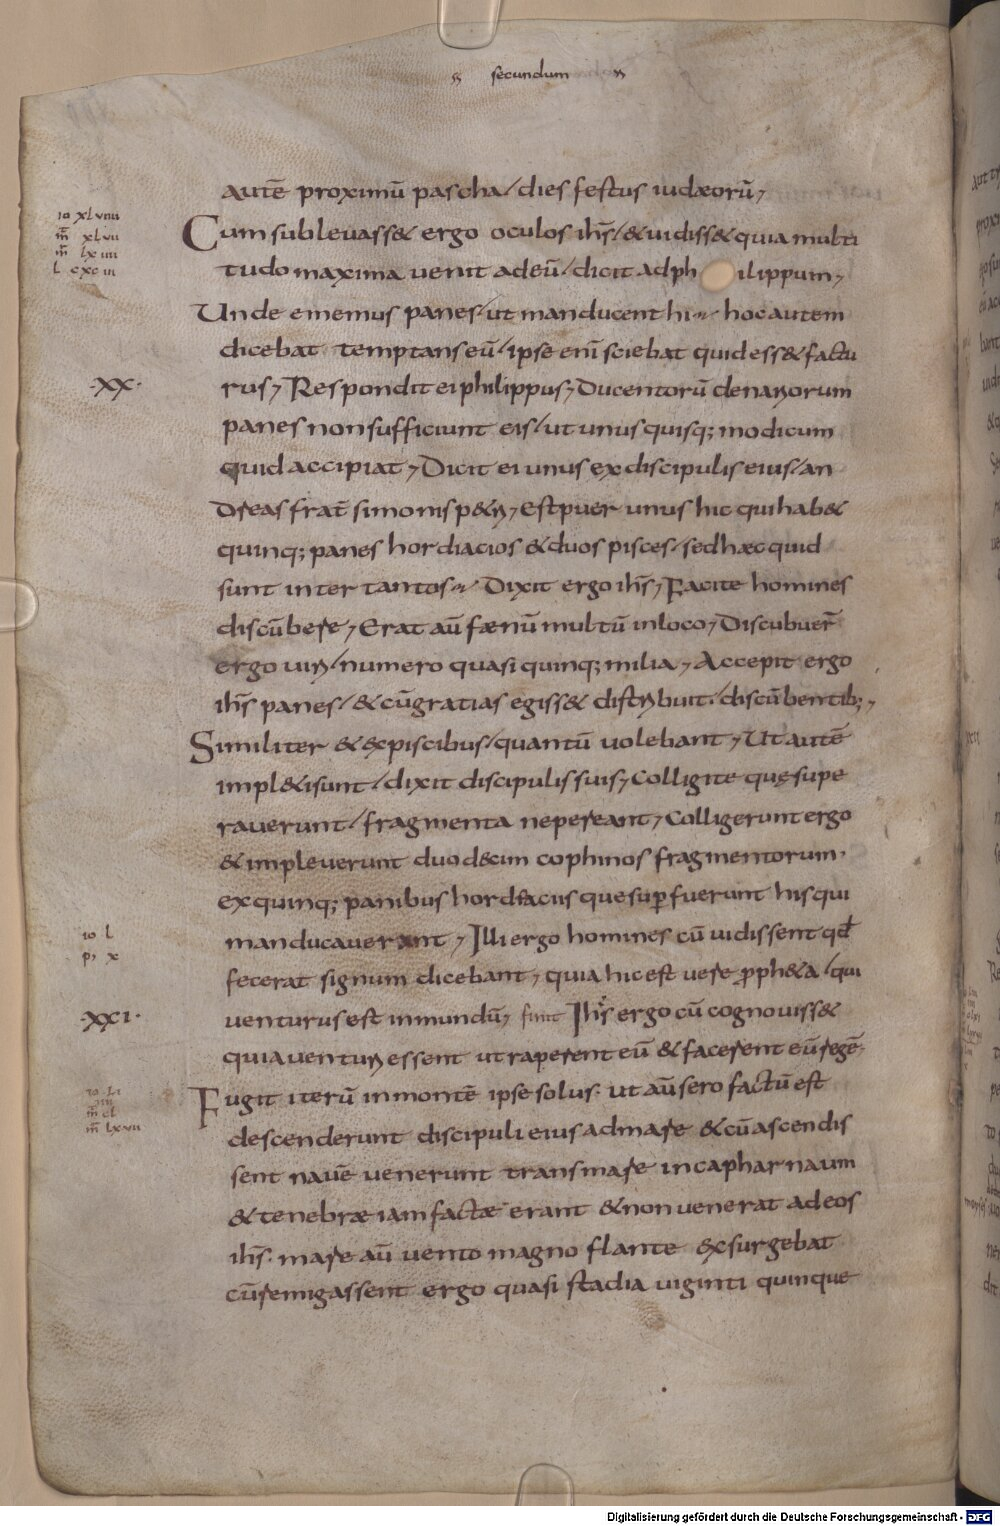 secundum
autē proximū pascha / dies festus iudæorū,
io xLviiii
Cum sublevass& ergo oculos ihs̄ / & vidiss& quia multi
m̄ xlvii
m̄ lxiiii
tudo maxima venit ad eū / dicit ad ph ilippum,
L cxciii
Unde ememus panes / ut manducent hi hoc autem
dicebat temptans eū / ipse eni sciebat quid ess& factu
·XX·
rus, Respondit ei philippus, Ducentorū denariorum
panes non sufficiunt eis / ut unus quisq; modicum
quid accipiat, Dicit ei unus ex discipulis eius / an
dreas frat̄ simonis p&ri, Est puer unus hic qui hab&
quinq; panes hordiacios & duos pisces / sed hæc quid
sunt inter tantos Dixit ergo ihs̄, Facite homines
discūbere, Erat aū fænū multū in loco, Discubuer̄
ergo viri / numero quasi quinq; milia, Accepit ergo
ihs̄ panes / & cū gratias egiss& distribuit / discūbentib;,
Similiter & ex piscibus / quantū volebant, Ut autē
impl&i sunt / dixit discipulis suis, Colligite quę supe
raverunt / fragmenta ne pereant, Colligerunt ergo
& impleverunt duodecim cophinos fragmentorum·
ex quinq; panibus hordiaciis que sup̄fuerunt his qui
io l
manducaverant, Illi ergo homines cū vidissent qđ
p, x
fecerat signum dicebant, quia hic est vere proph&a / qui
·XXI·
venturus est in mundū, finit Ihs̄ ergo cū cognoviss&
quia venturi essent ut raperent eū & facerent eū regē·
io Li
Fugit iterū in montē ipse solus· ut aū sero factū est
m̄ cl
m̄ lxvii
descenderunt discipuli eius ad mare & cū ascendis
sent navē venerunt trans mare in capharnaum
& tenebræ iam factæ erant & non venerat ad eos
ihs̄· mare aū vento magno flante exsurgebat
cū remigassent ergo quasi stadia viginti quinque
Digitalisierung gefördert durch die Deutsche Forschungsgemeinschaft - DFG